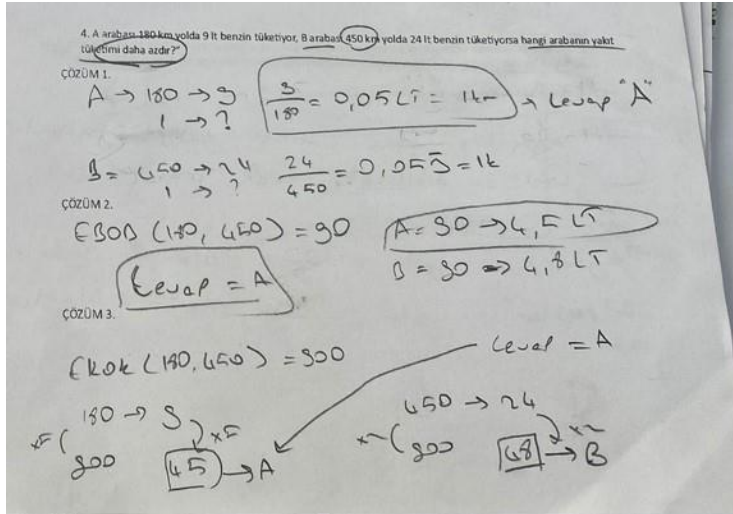 4. A arabası 180 km yolda 9 lt benzin tüketiyor, B arabası 450 km yolda 24 lt benzin tüketiyorsa hangi arabanın yakıt
tüketimi daha azdır?"
ÇÖZÜM 1.
A → 180 → 9
1 → ?
9/180 = 0,05 LT = 1km → Cevap "A"
B = 450 → 24
1 → ?
24/450 = 0,053̅ = 1k
ÇÖZÜM 2.
EBOB (180, 450) = 90
A = 90 → 4,5 LT
B = 90 → 4,8 LT
Cevap = A
ÇÖZÜM 3.
EKOK (180, 450) = 900
Cevap = A
180 → 9
x5 x5
900 45 → A
450 → 24
x2 x2
900 48 → B